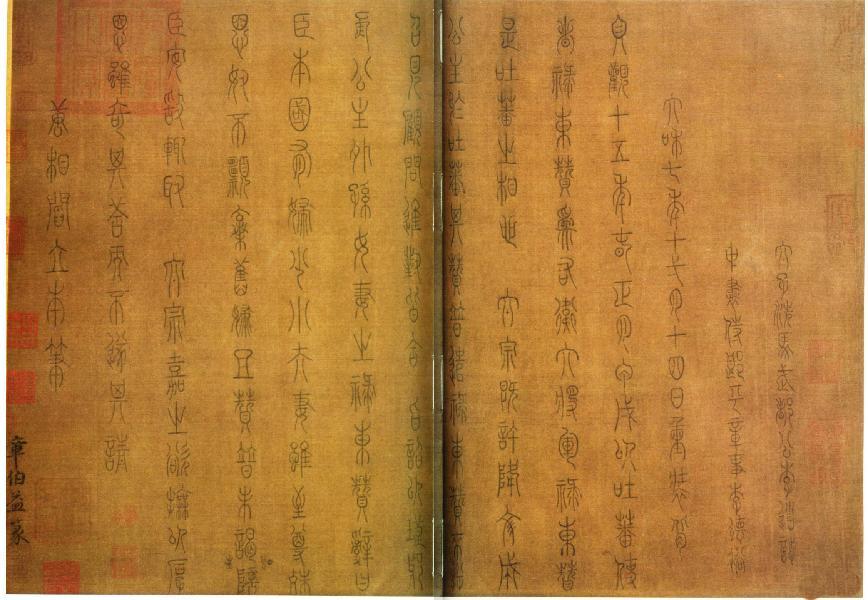 太子洗馬武都公李道誌
中書侍郎平章事李德裕
大和七年十一月十四日重裝背
貞觀十五年春正月甲戌以吐蕃使
者祿東贊爲右衛大將軍祿東贊
是吐蕃之相也 太宗既許降文成
公主於吐蕃其贊普遣祿東贊來
召見顧問進對皆合 旨詔以琅邪
長公主外孫女妻之祿東贊辭曰
臣本國有婦少小夫妻雖至尊殊
恩奴不願棄舊婦且贊普未謁
臣安敢輒取 太宗嘉之欲撫以厚
恩雖奇其答而不遂其請
唐相閻立本筆
章伯益篆